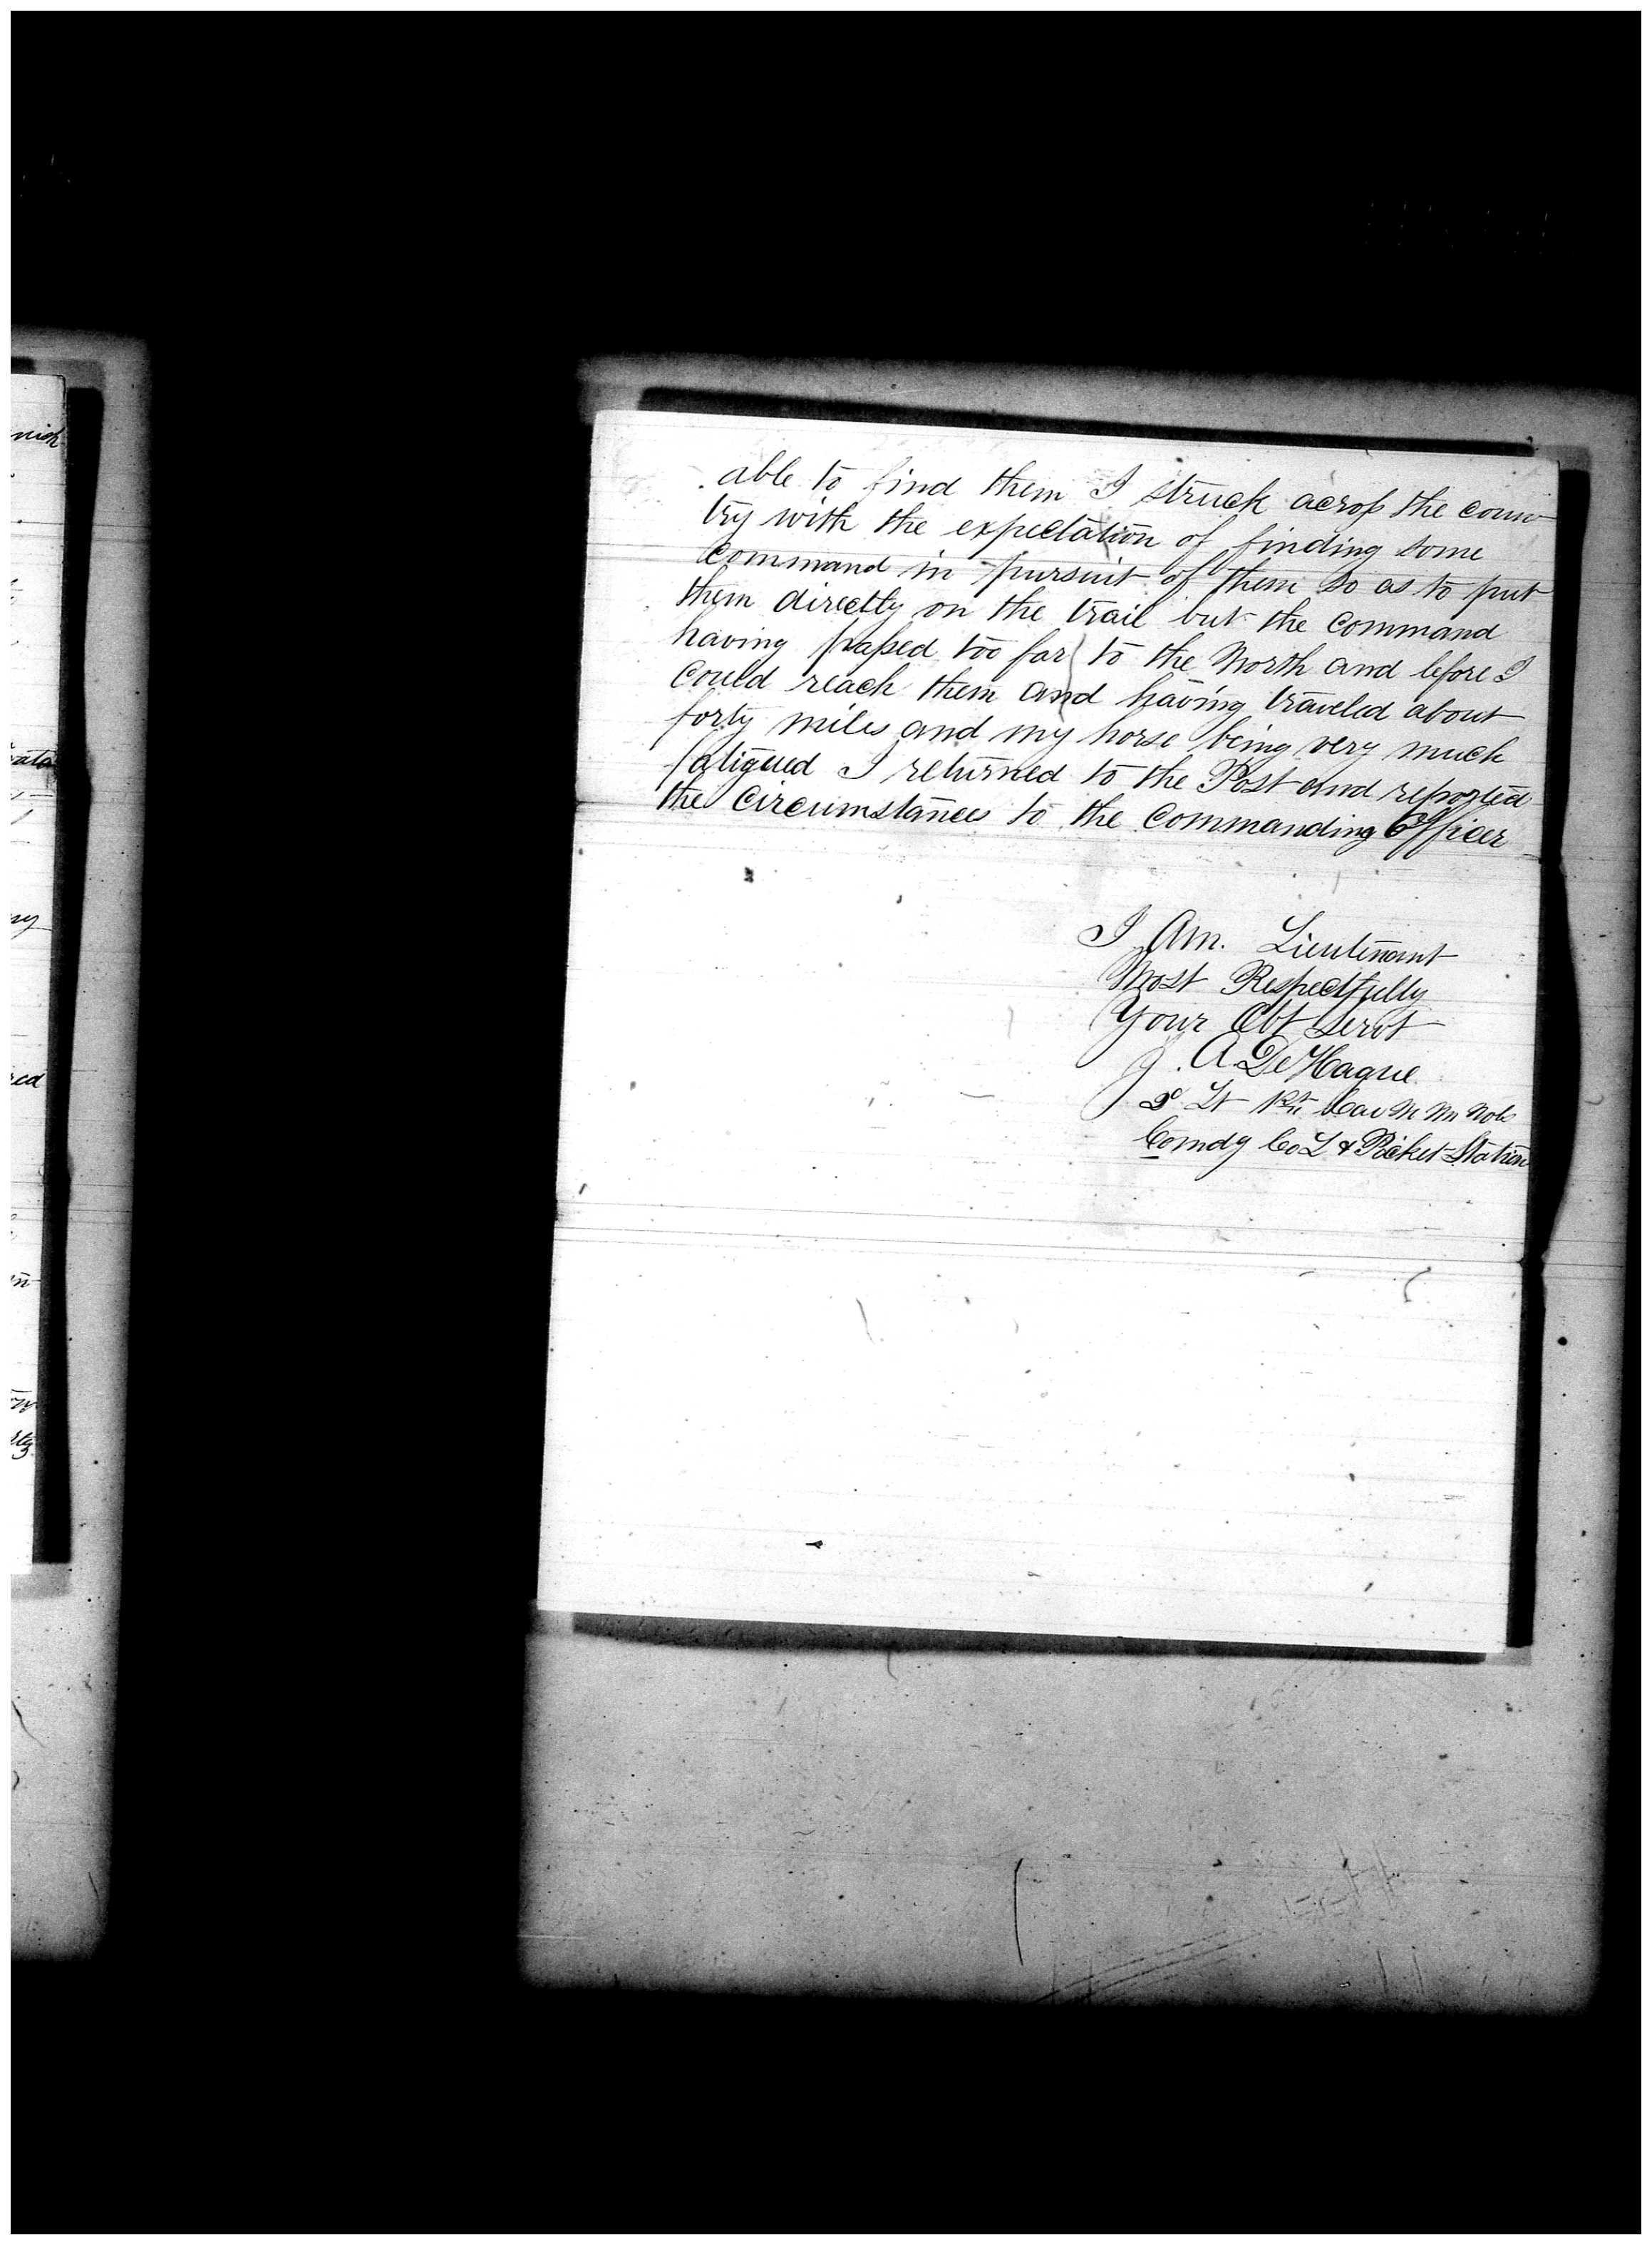 able to find them I struck across the coun
try with the expectation of finding some
command in pursuit of them so as to put
them directly on the trail but the command
having passed too far to the North and before I
could reach them and having traveled about
forty miles and my horse being very much
fatigued I returned to the Post and reported
the circumstances to the Commanding Officer
I Am. Lieutenant
Most Respectfully
Your Obt Servt
J. A. DeHague
2d Lt 1st Cav N M Vols
Comdg Co L & Picket Station